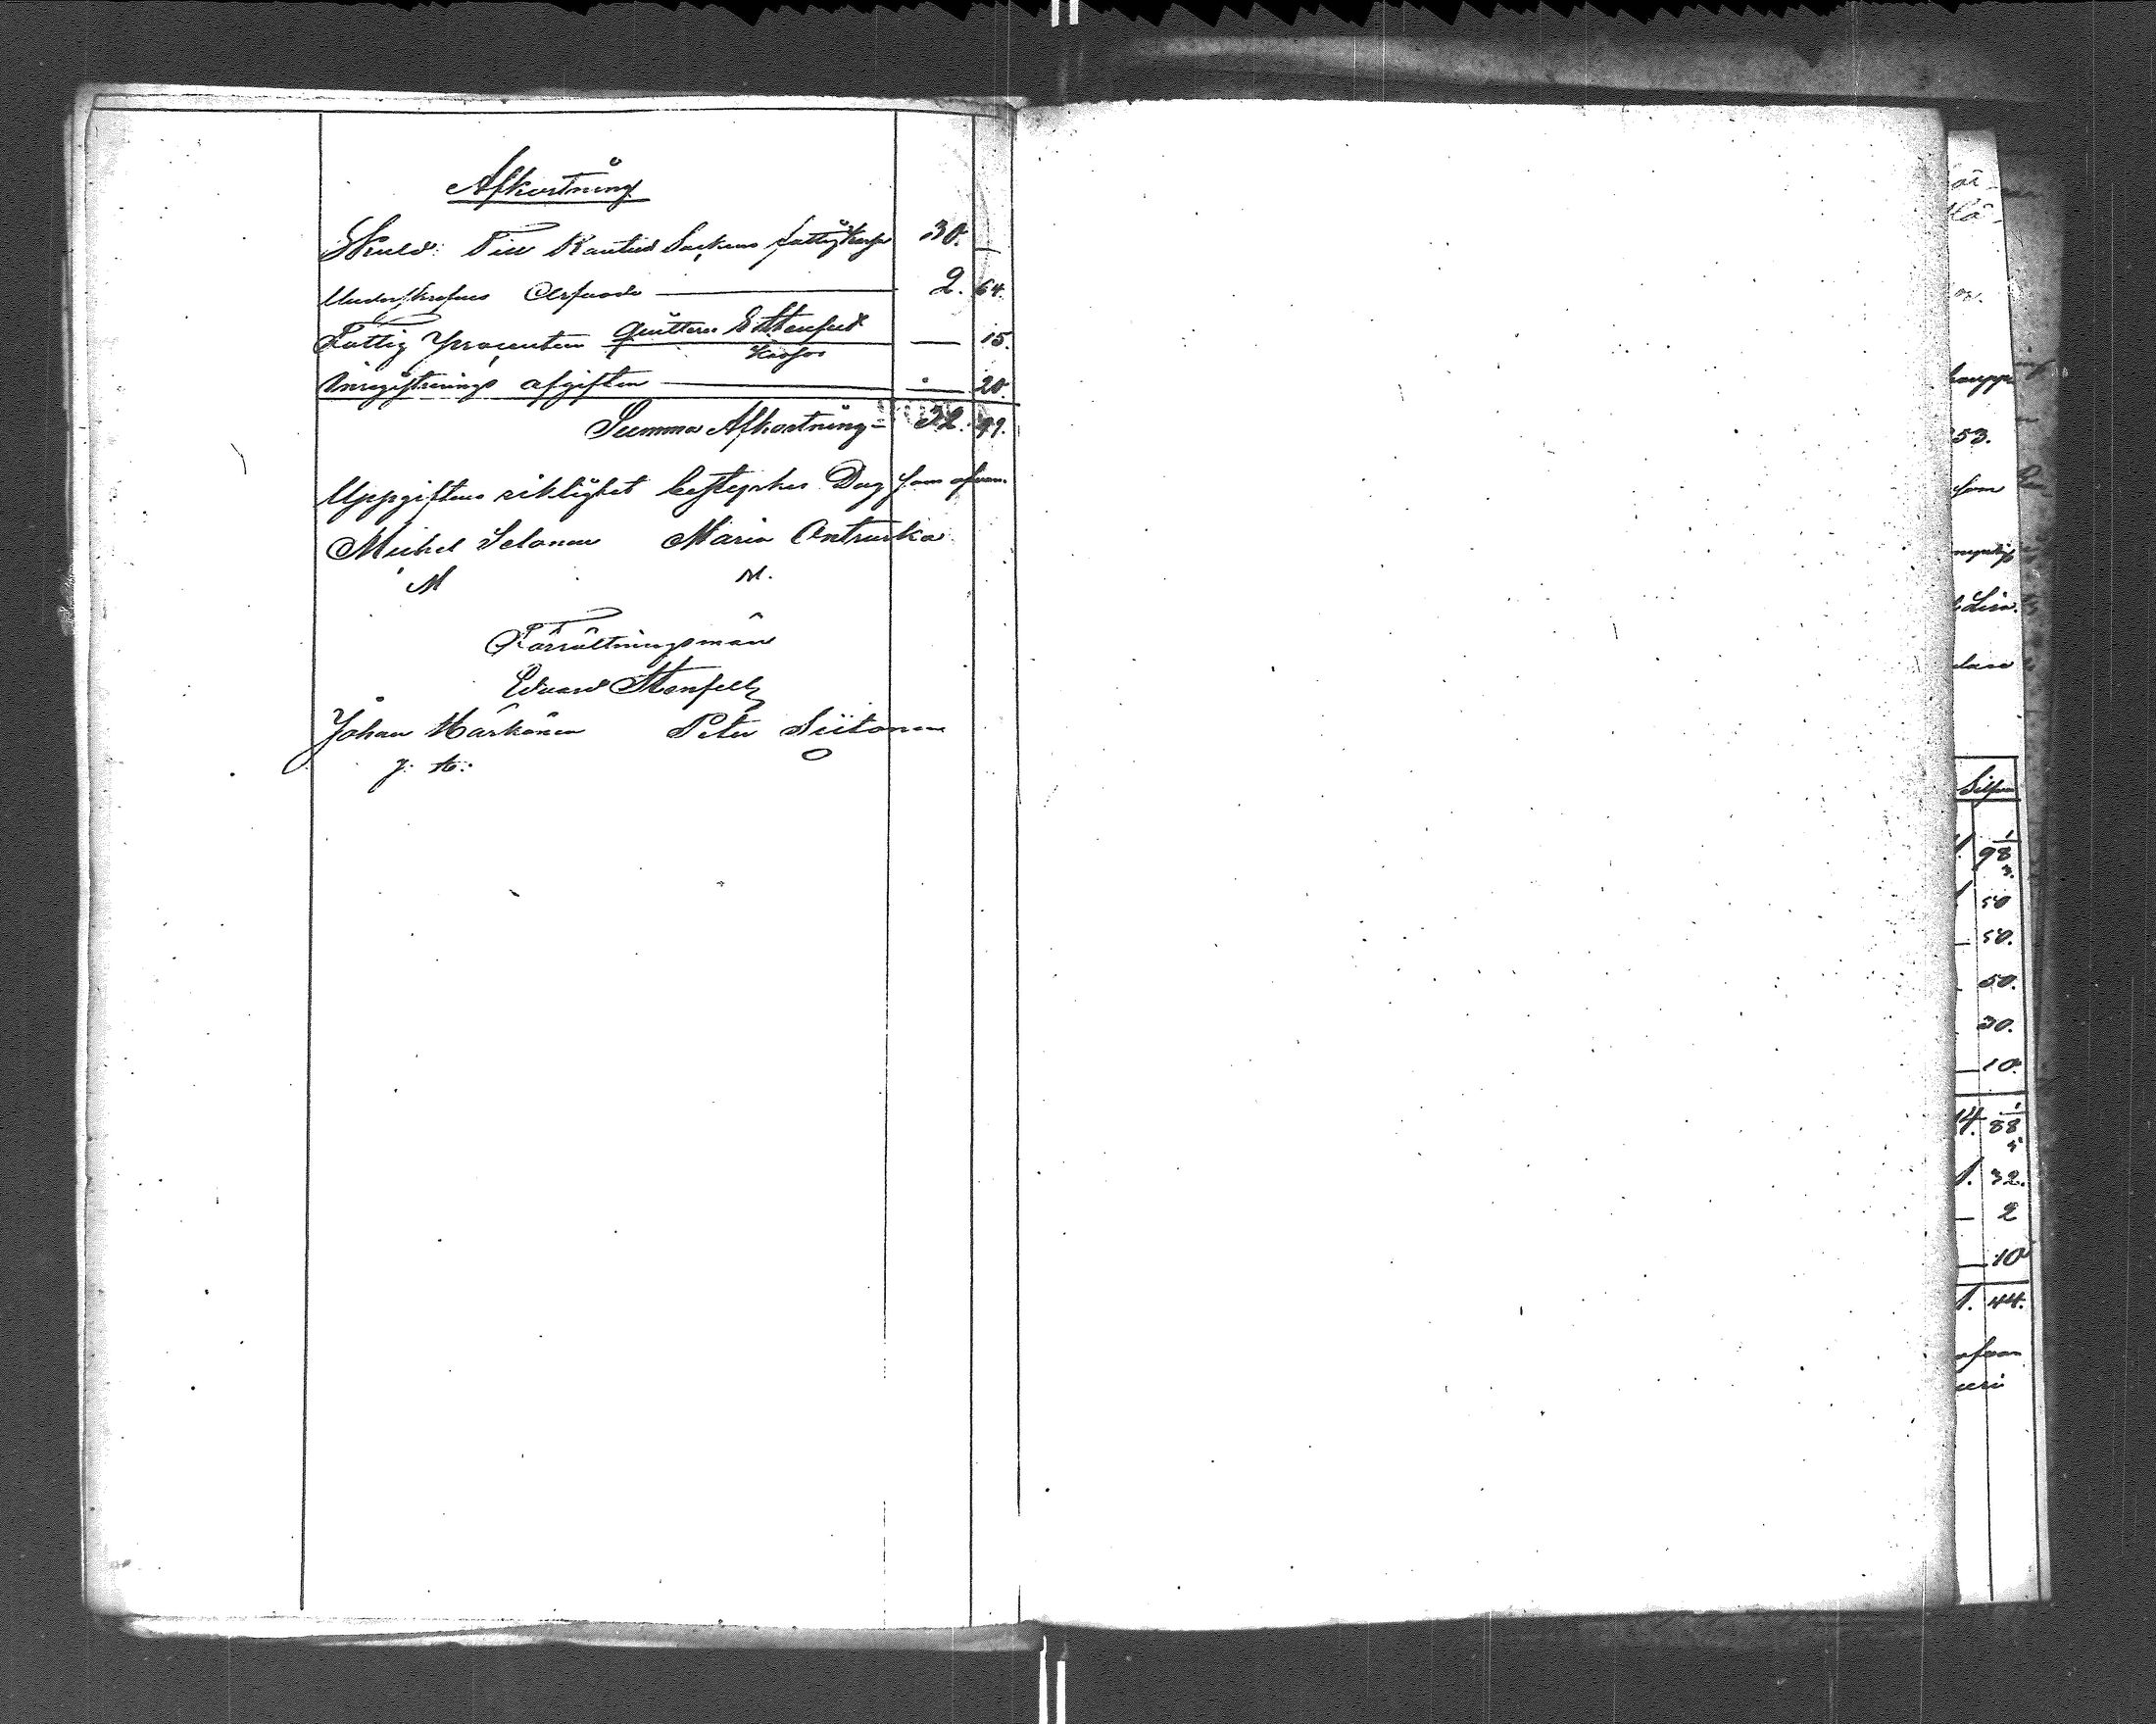 Afkortning
Skuld: Till Rautus Sockens fattig Kassa 30. —
Underskrefvus Arfvode — 2. 64.
Fattig Procenten quitteras E Stenfeld — 15.
Kassör
Inregistrerings afgiften — 20.
Summa Afkortning — 32. 99.
Uppgiftens riktighet bestyrkes Dag som ofvan.
Michel Ielonen Maria Antruska
M M.
Förrättningsmän
Eduard Stenfelt
Johan Härkönen Peter Siitonen
J. H: O
53.
son
Lisa.
Silfver
98
50
50.
50.
30.
10.
14. 88
1. 32.
— 2
— 10
1. 44.
ofvan